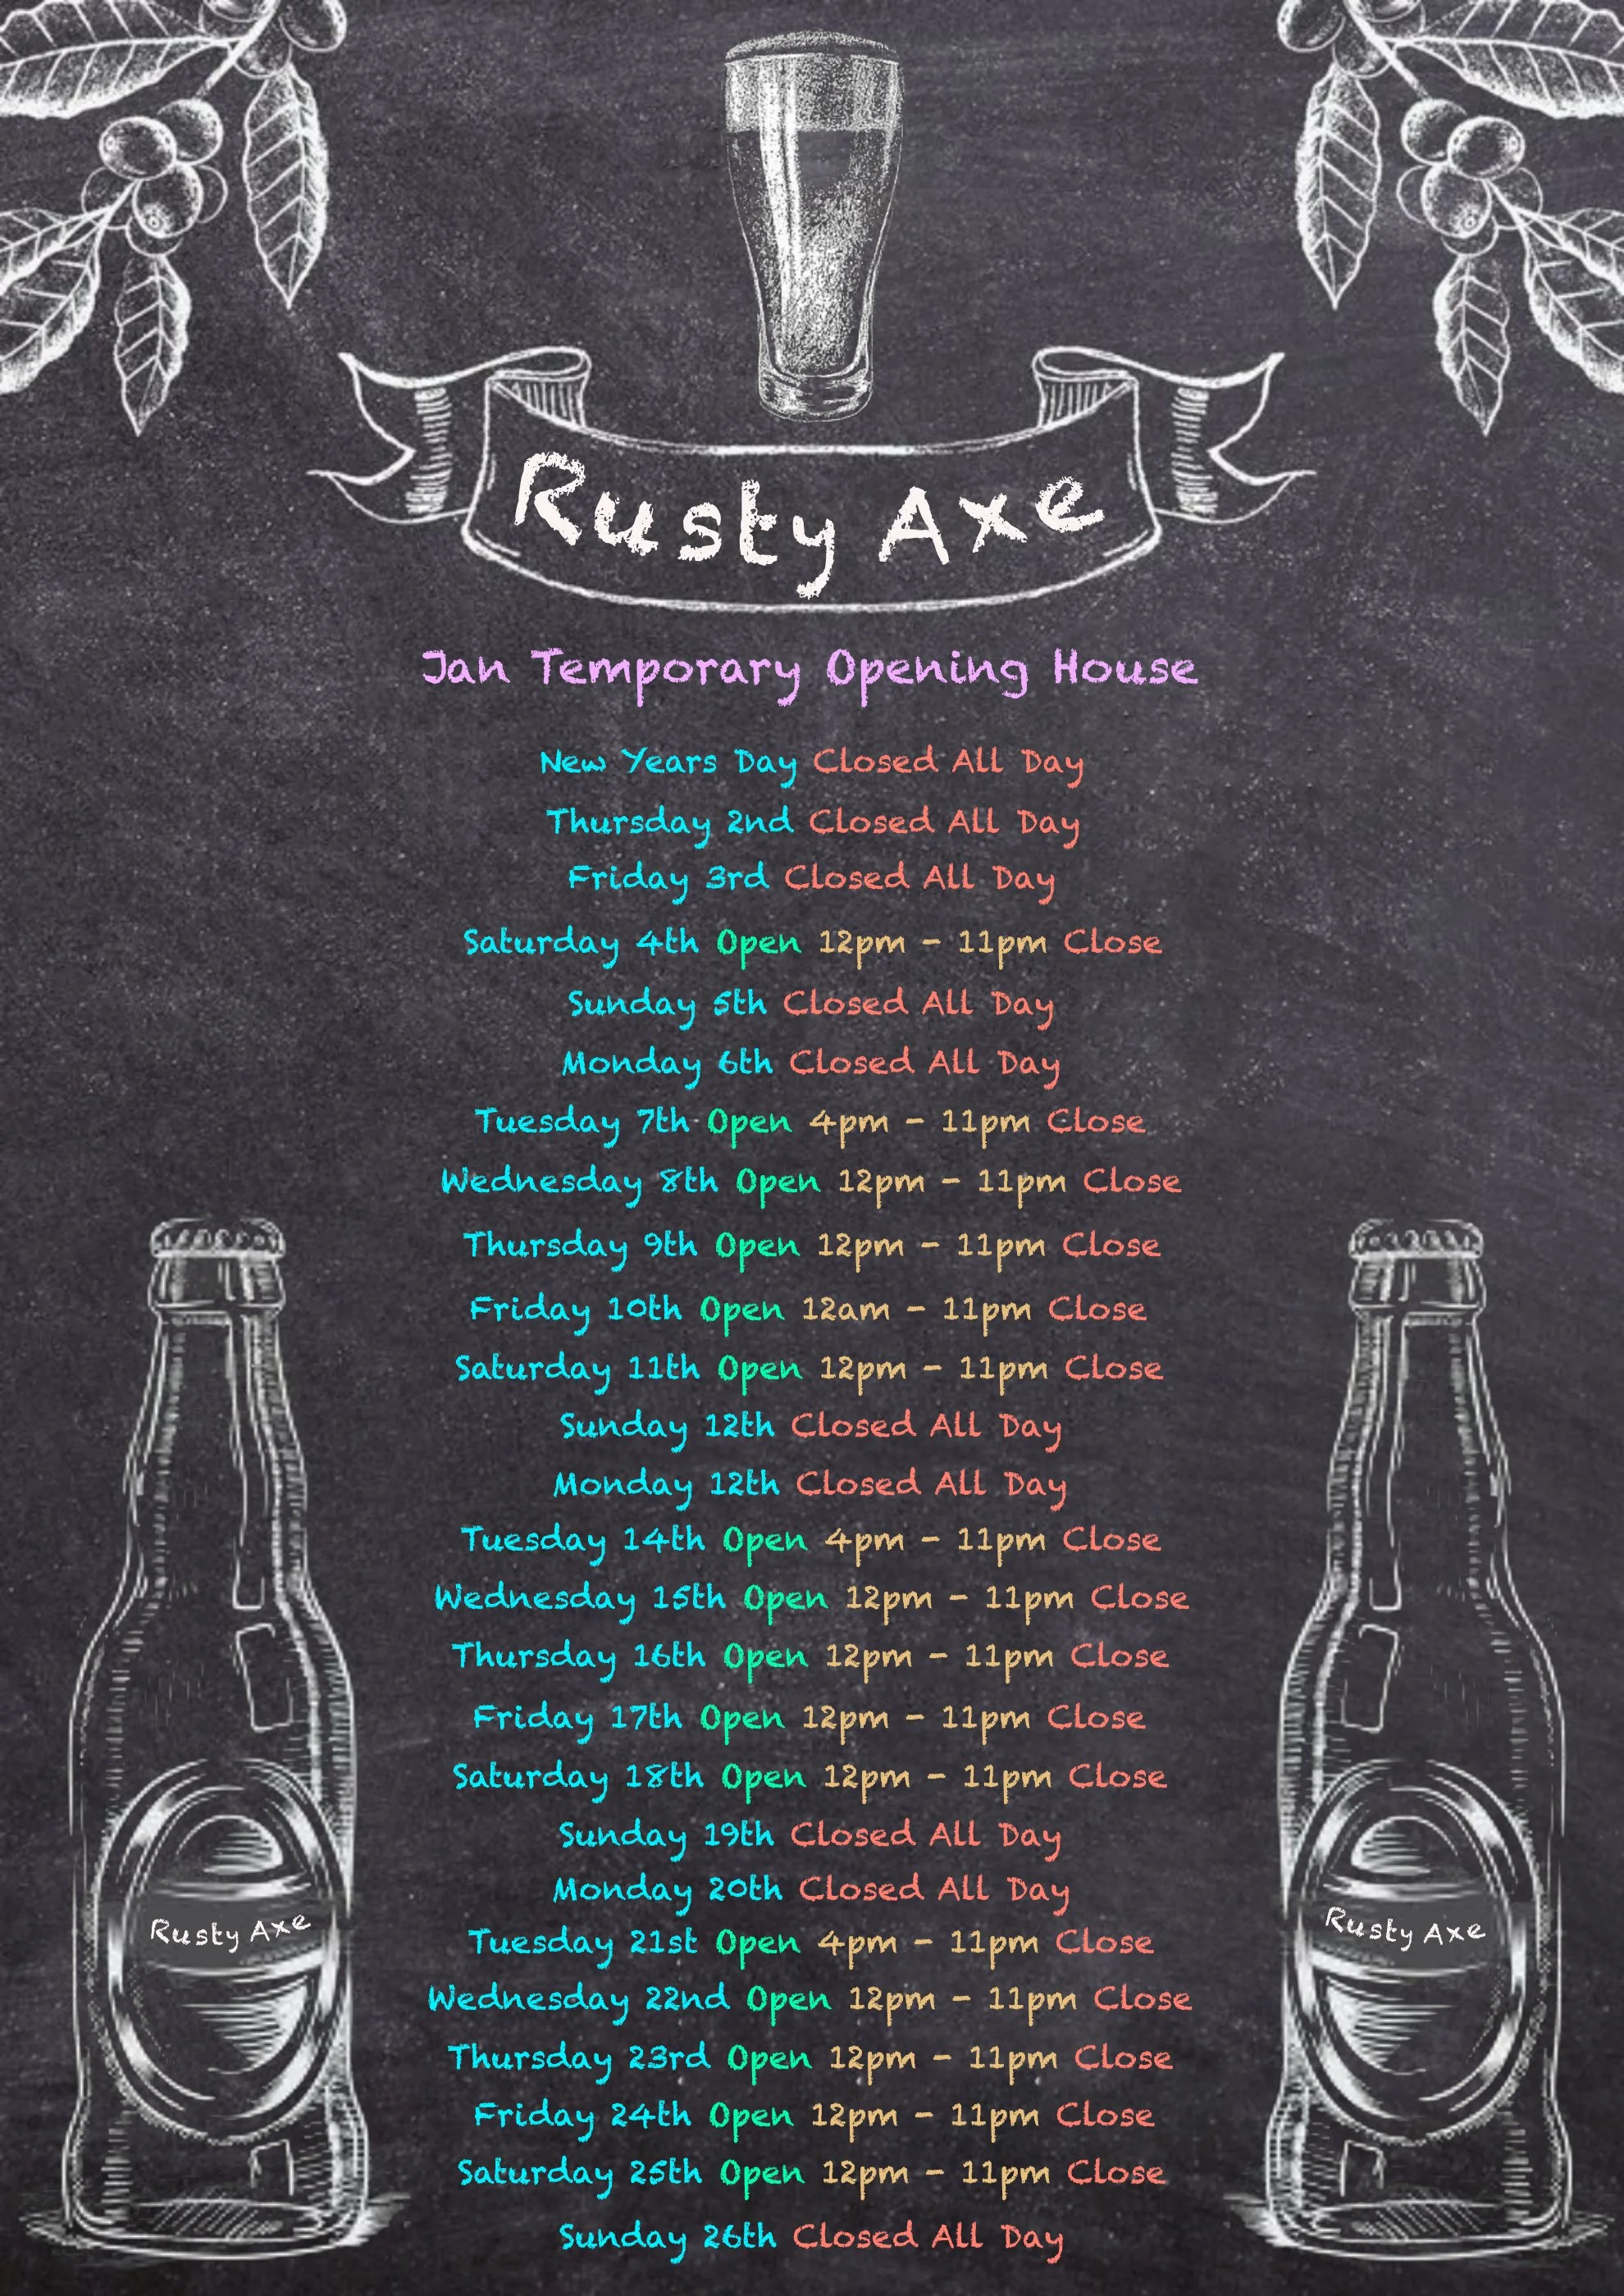 Rusty Axe
Jan Temporary Opening House
New Years Day Closed All Day
Thursday 2nd Closed All Day
Friday 3rd Closed All Day
Saturday 4th Open 12pm - 11pm Close
Sunday 5th Closed All Day
Monday 6th Closed All Day
Tuesday 7th Open 4pm - 11pm Close
Wednesday 8th Open 12pm - 11pm Close
Thursday 9th Open 12pm - 11pm Close
Friday 10th Open 12am - 11pm Close
Saturday 11th Open 12pm - 11pm Close
Sunday 12th Closed All Day
Monday 12th Closed All Day
Tuesday 14th Open 4pm - 11pm Close
Wednesday 15th Open 12pm - 11pm Close
Thursday 16th Open 12pm - 11pm Close
Friday 17th Open 12pm - 11pm Close
Saturday 18th Open 12pm - 11pm Close
Sunday 19th Closed All Day
Monday 20th Closed All Day
Tuesday 21st Open 4pm - 11pm Close
Wednesday 22nd Open 12pm - 11pm Close
Thursday 23rd Open 12pm - 11pm Close
Friday 24th Open 12pm - 11pm Close
Saturday 25th Open 12pm - 11pm Close
Sunday 26th Closed All Day
Rusty Axe
Rusty Axe